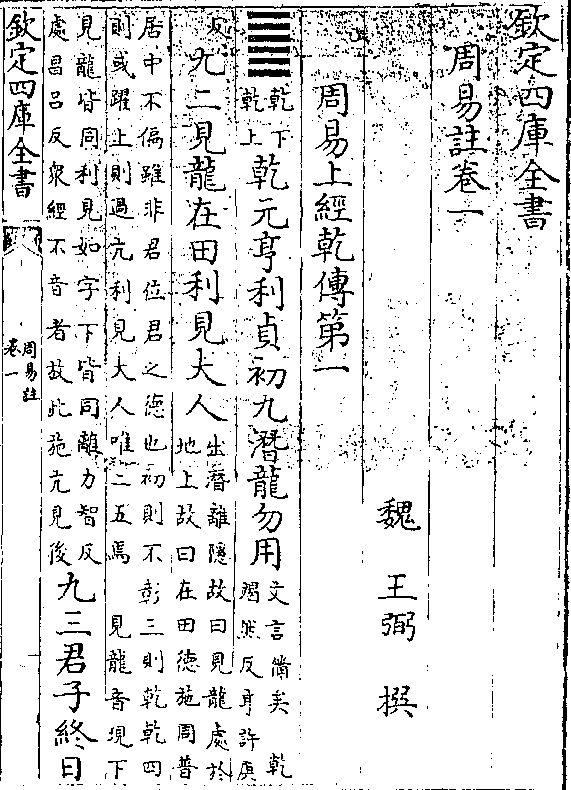 欽定四庫全書
周易註卷一
魏 王弼 撰
周易上經乾傳第一
䷀ 乾下 乾上 乾元亨利貞初九潛龍勿用 文言備矣 乾 渴然反亨許庚
反 九二見龍在田利見大人 出潛離隱故曰見龍處於 地上故曰在田徳施周普
居中不偏雖非君位君之徳也初則不彰三則乾乾四
則或躍上則過亢利見大人唯二五焉 見龍音現下
見龍皆同利見如字下皆同離力智反
處昌呂反衆經不音者放此施亢見後 九三君子終日
欽定四庫全書
周易註
卷一